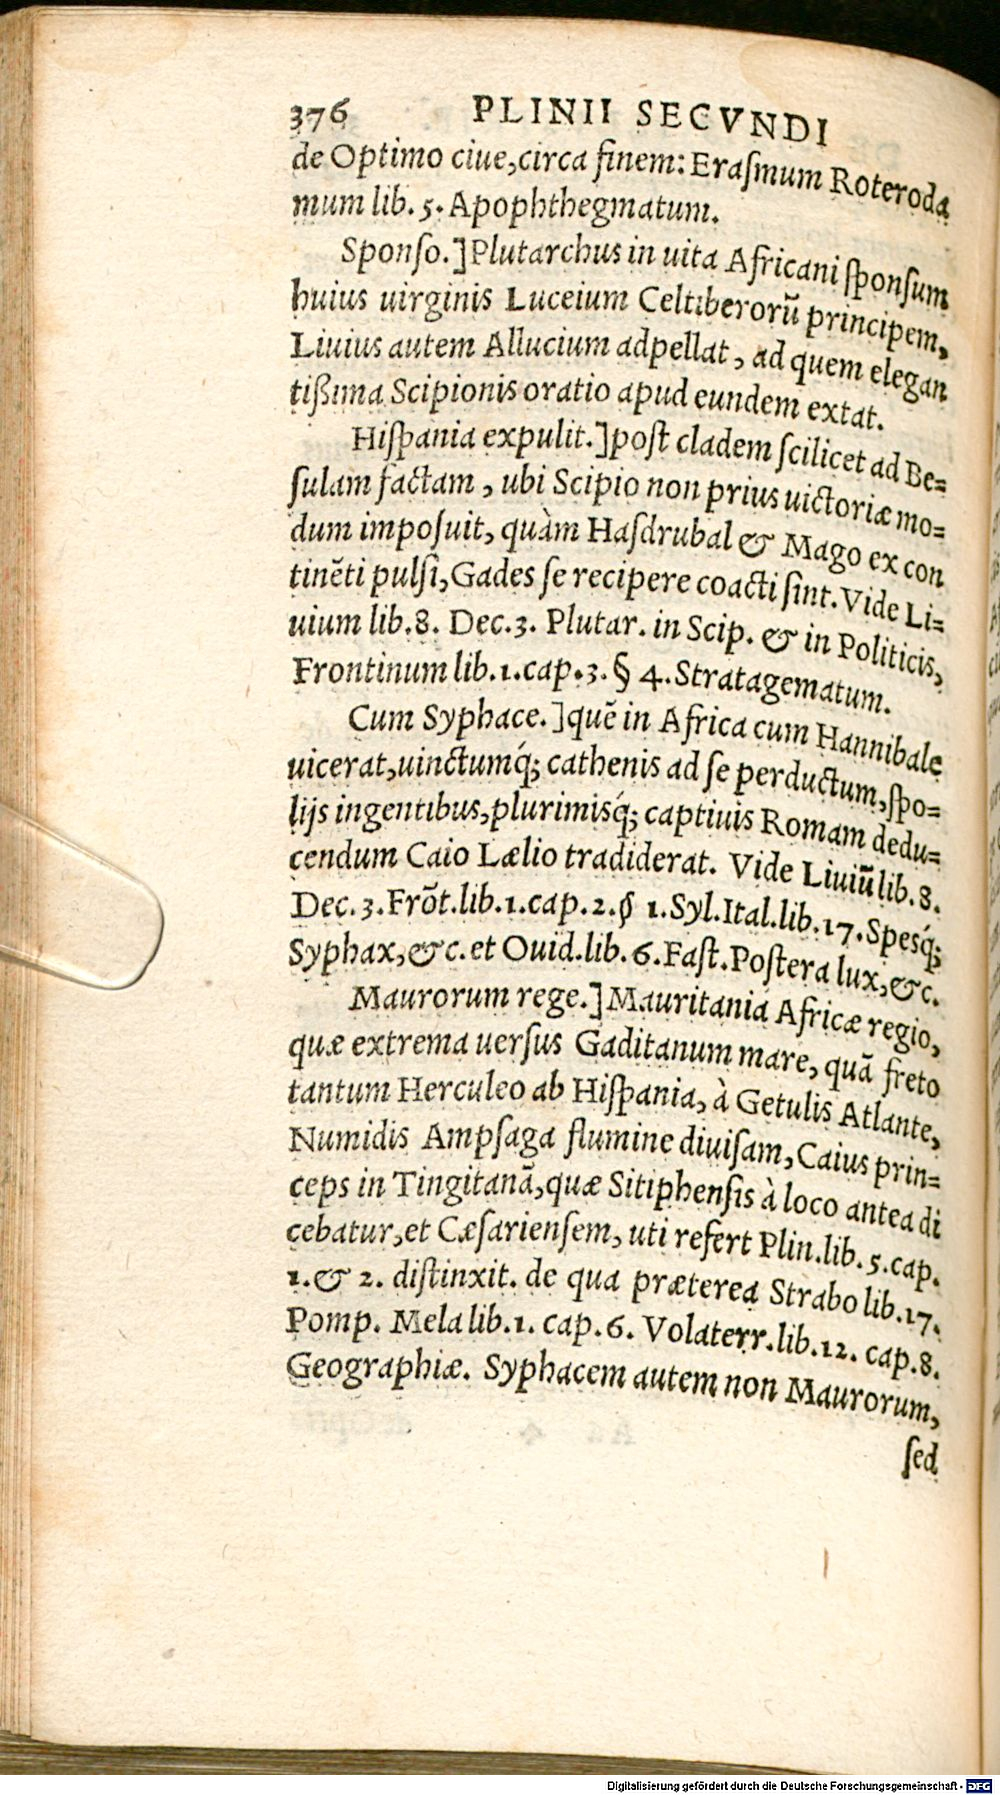 376 PLINII SECVNDI
de Optimo ciue, circa finem: Erasmum Roteroda
mum lib. 5. Apophthegmatum.
Sponso.] Plutarchus in uita Africani sponsum
huius uirginis Luceium Celtiberorũ principem,
Liuius autem Allucium adpellat, ad quem elegan
tißima Scipionis oratio apud eundem extat.
Hispania expulit.] post cladem scilicet ad Be=
sulam factam, ubi Scipio non prius uictoriæ mo=
dum imposuit, quàm Hasdrubal & Mago ex con
tinẽti pulsi, Gades se recipere coacti sint. Vide Li=
uium lib. 8. Dec. 3. Plutar. in Scip. & in Politicis,
Frontinum lib. 1. cap. 3. § 4. Stratagematum.
Cum Syphace.] quẽ in Africa cum Hannibale
uicerat, uinctumq́; cathenis ad se perductum, spo=
lijs ingentibus, plurimisq́; captiuis Romam dedu=
cendum Caio Lælio tradiderat. Vide Liuiũ lib. 8.
Dec. 3. Frõt. lib. 1. cap. 2. § 1. Syl. Ital. lib. 17. Spesq́;
Syphax, &c. et Ouid. lib. 6. Fast. Postera lux, &c.
Maurorum rege.] Mauritania Africæ regio,
quæ extrema uersus Gaditanum mare, quã freto
tantum Herculeo ab Hispania, à Getulis Atlante,
Numidis Ampsaga flumine diuisam, Caius prin=
ceps in Tingitanã, quæ Sitiphensis à loco antea di
cebatur, et Cæsariensem, uti refert Plin. lib. 5. cap.
1. & 2. distinxit. de qua præterea Strabo lib. 17.
Pomp. Mela lib. 1. cap. 6. Volaterr. lib. 12. cap. 8.
Geographiæ. Syphacem autem non Maurorum,
sed
Digitalisierung gefördert durch die Deutsche Forschungsgemeinschaft - DFG